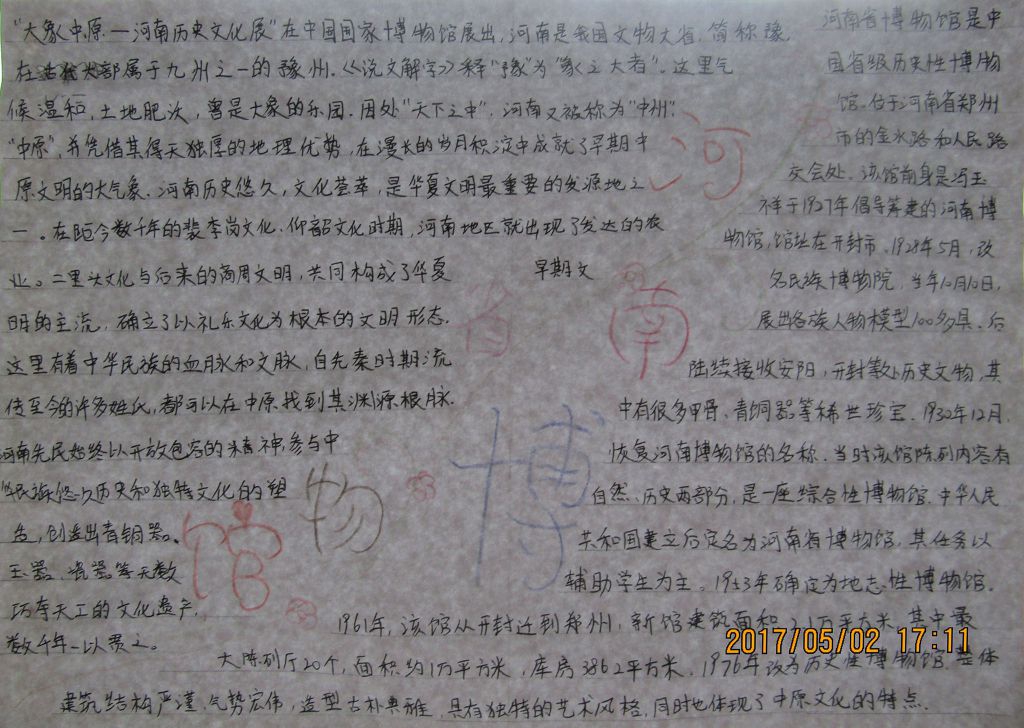 “大象中原—河南历史文化展”在中国国家博物馆展出，河南是我国文物大省，简称豫，
在古代大部属于九州之一的豫州，《说文解字》释“豫”为“象之大者”。这里气
候温和，土地肥沃，曾是大象的乐园。因处“天下之中”，河南又被称为“中州”，
“中原”，并凭借其得天独厚的地理优势，在漫长的岁月积淀中成就了早期中
原文明的大气象。河南历史悠久，文化荟萃，是华夏文明最重要的发源地之
一。在距今数千年的裴李岗文化、仰韶文化时期，河南地区就出现了发达的农
业。二里头文化与后来的商周文明，共同构成了华夏
早期文
明的主流，确立了以礼乐文化为根本的文明形态。
这里有着中华民族的血脉和文脉，自先秦时期流
传至今的许多姓氏，都可以在中原找到其渊源根脉。
河南先民始终以开放包容的精神，参与中
华民族悠久历史和独特文化的塑
造，创造出青铜器、
玉器、瓷器等无数
巧夺天工的文化遗产，
数千年一以贯之。
河南省博物馆是中
国省级历史性博物
馆。位于河南省郑州
市的金水路和人民路
交会处。该馆前身是冯玉
祥于1927年倡导筹建的河南博
物馆，馆址在开封市。1928年5月，改
名民族博物院，当年10月10日，
展出各族人物模型100多具。后
陆续接收安阳，开封等处历史文物，其
中有很多甲骨、青铜器等稀世珍宝。1930年12月，
恢复河南博物馆的名称。当时该馆陈列内容有
自然、历史两部分，是一座综合性博物馆。中华人民
共和国建立后定名为河南省博物馆，其任务以
辅助学生为主。1953年确定为地志性博物馆。
1961年，该馆从开封迁到郑州，新馆建筑面积2.1万平方米，其中最
大陈列厅20个，面积约1万平方米，库房3862平方米。1976年改为历史性博物馆 整体
建筑结构严谨、气势宏伟，造型古朴典雅，具有独特的艺术风格，同时也体现了中原文化的特点。
河
南
省
博
物
馆
2017/05/02 17:11